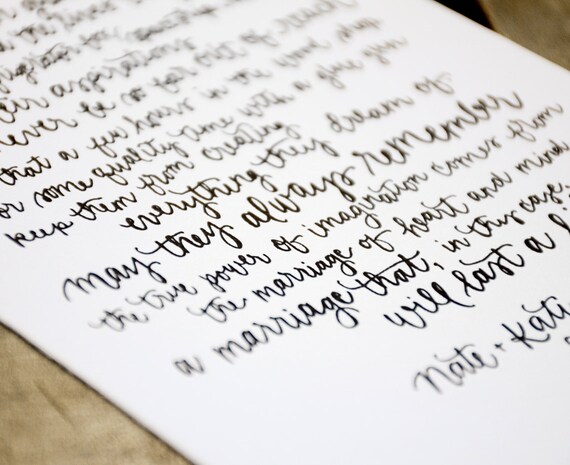 the lines
for
their aspirations
never be so far out of reach
that a few hours in the wood shop
or some quality time with a glue gun
keep them from creating
everything they dream of
may they always remember
the true power of imagination comes from
the marriage of heart and mind
a marriage that, in this case,
will last a
Nate + Kati